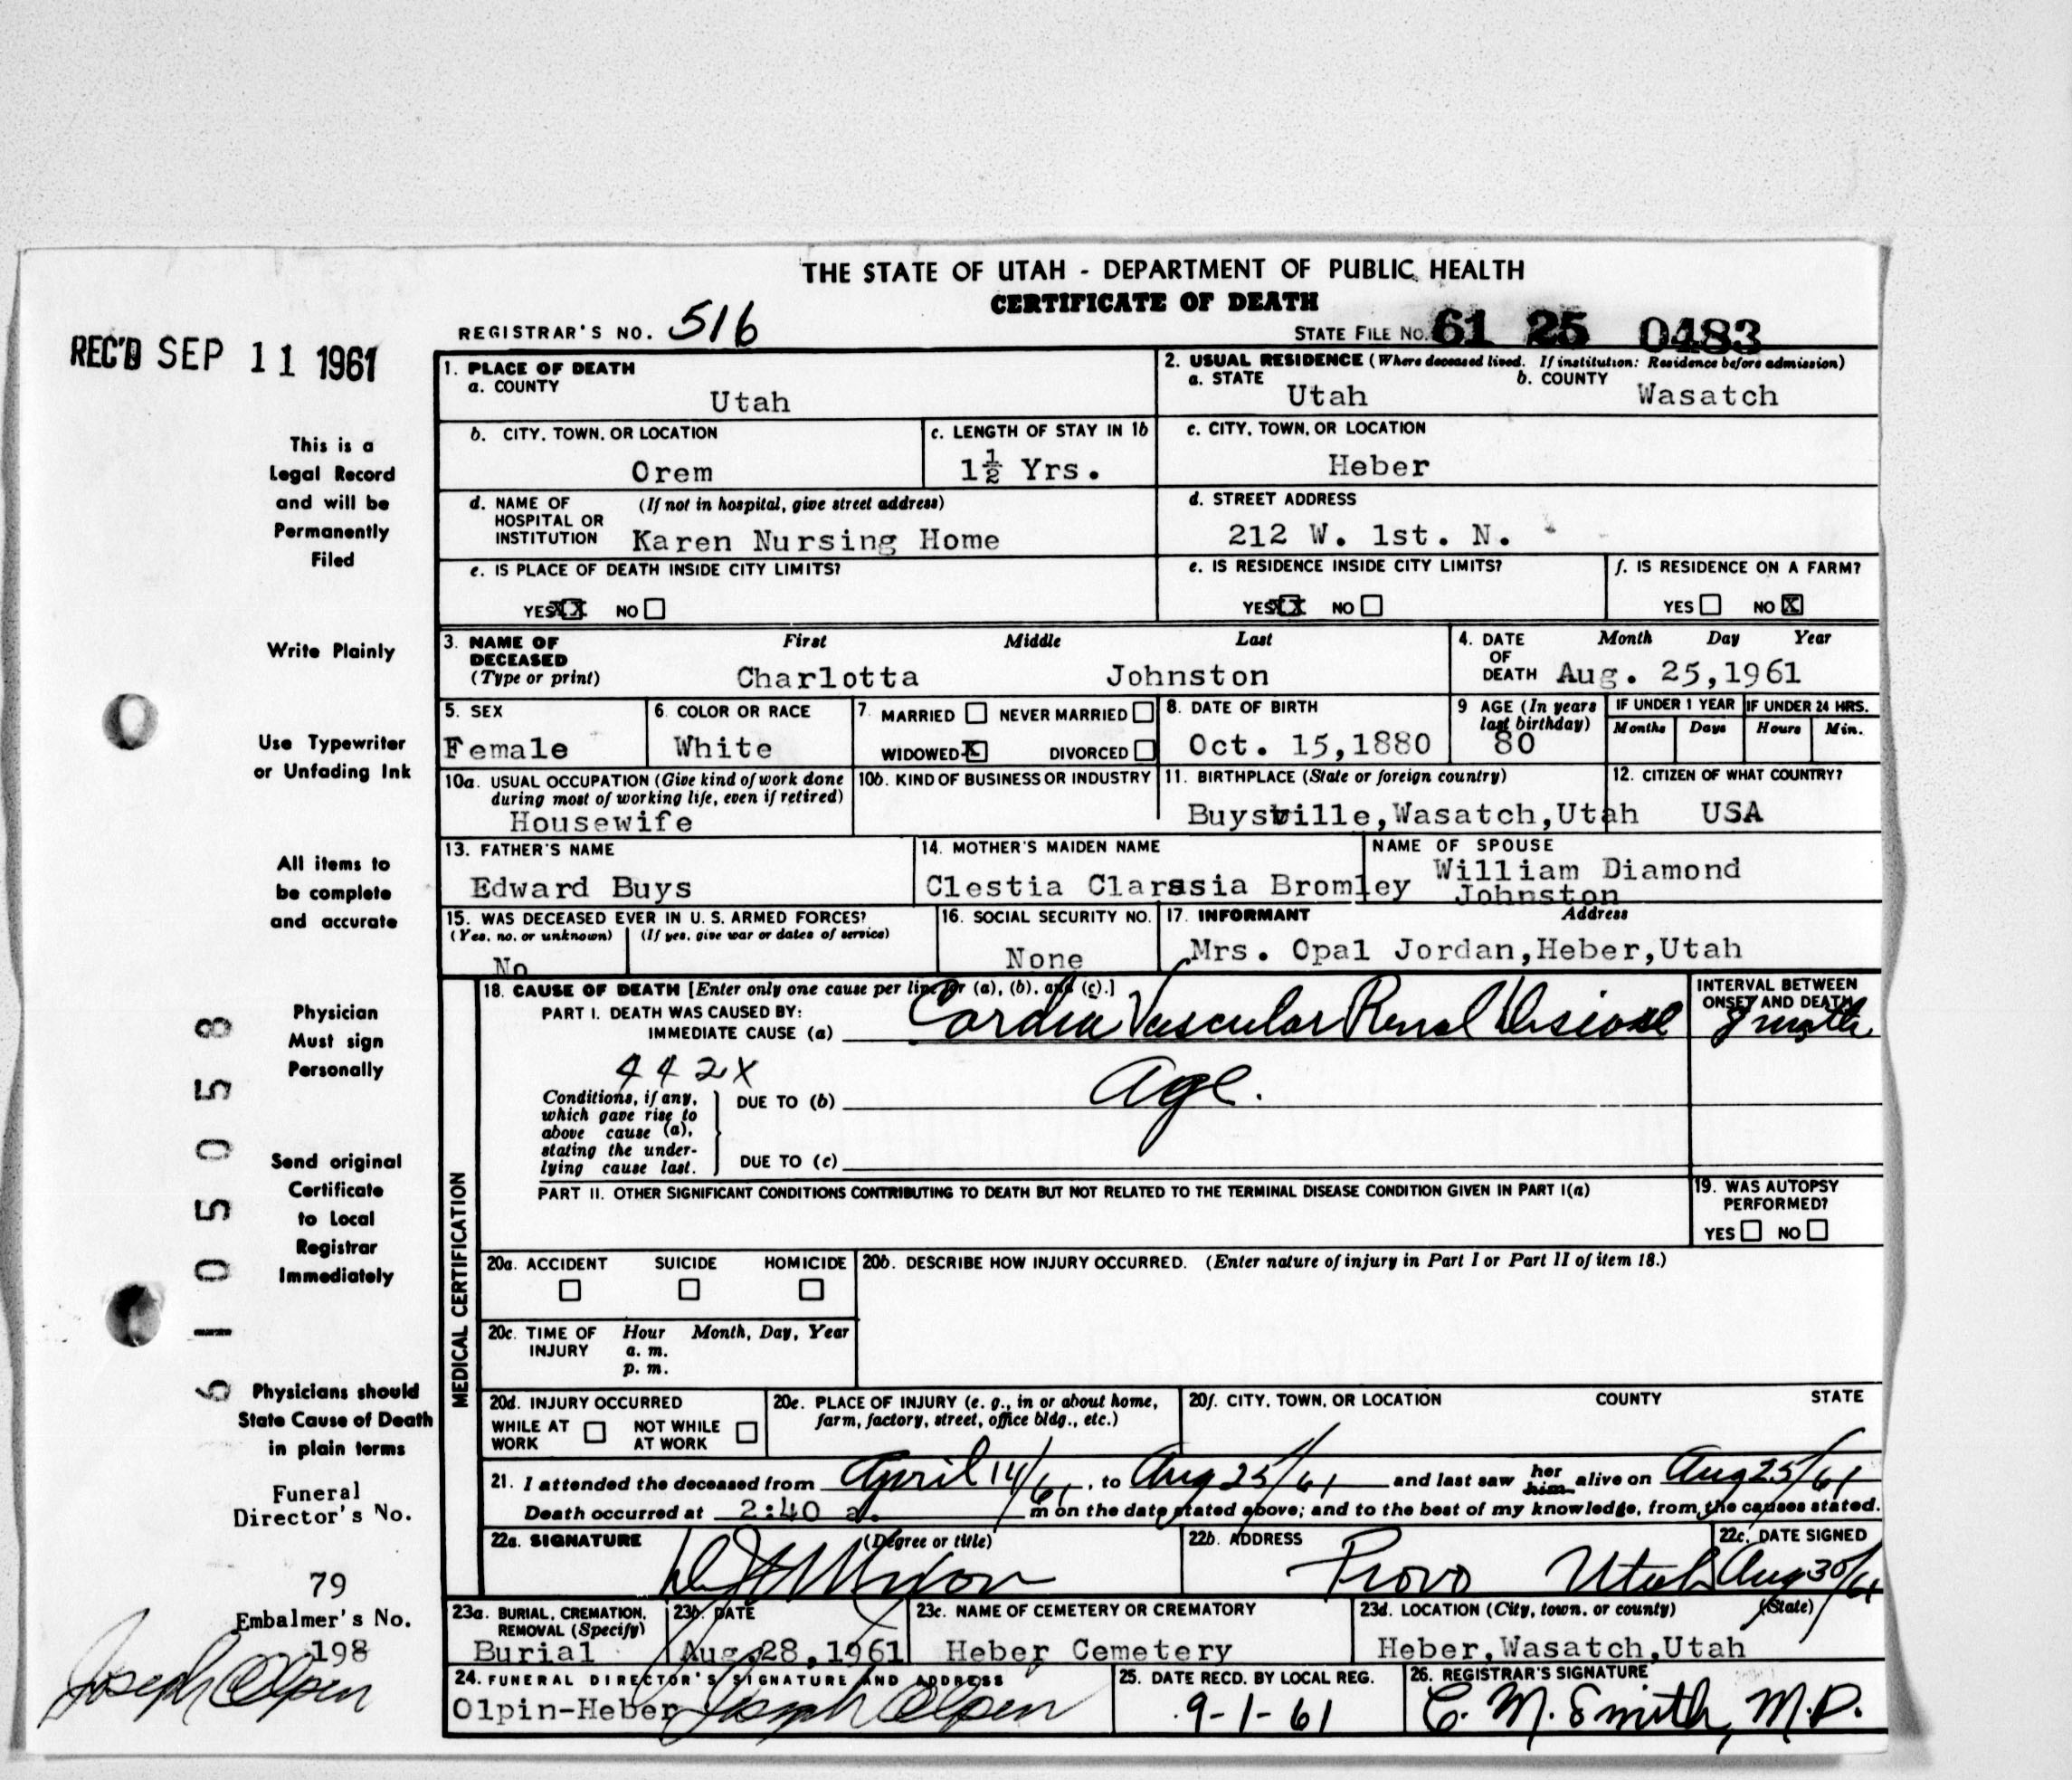 THE STATE OF UTAH - DEPARTMENT OF PUBLIC HEALTH
CERTIFICATE OF DEATH
REGISTRAR'S NO. 516
STATE FILE NO. 61 25 0483
REC'D SEP 11 1961
This is a
Legal Record
and will be
Permanently
Filed
Write Plainly
Use Typewriter
or Unfading Ink
All items to
be complete
and accurate
Physician
Must sign
Personally
Send original
Certificate
to Local
Registrar
Immediately
Physicians should
State Cause of Death
in plain terms
Funeral
Director's No.
79
Embalmer's No.
198
Joseph Olpin
61050508
1. PLACE OF DEATH
a. COUNTY
Utah
2. USUAL RESIDENCE (Where deceased lived. If institution: Residence before admission)
a. STATE
Utah
b. COUNTY
Wasatch
b. CITY, TOWN, OR LOCATION
Orem
c. LENGTH OF STAY IN 1b
1½ Yrs.
c. CITY, TOWN, OR LOCATION
Heber
d. NAME OF HOSPITAL OR INSTITUTION
(If not in hospital, give street address)
Karen Nursing Home
d. STREET ADDRESS
212 W. 1st. N.
e. IS PLACE OF DEATH INSIDE CITY LIMITS?
YES XX NO
e. IS RESIDENCE INSIDE CITY LIMITS?
YES XX NO
f. IS RESIDENCE ON A FARM?
YES NO X
3. NAME OF DECEASED (Type or print)
First Middle Last
Charlotta Johnston
4. DATE OF DEATH
Month Day Year
Aug. 25,1961
5. SEX
Female
6. COLOR OR RACE
White
7. MARRIED NEVER MARRIED
WIDOWED X DIVORCED
8. DATE OF BIRTH
Oct. 15,1880
9 AGE (In years last birthday)
80
IF UNDER 1 YEAR IF UNDER 24 HRS.
Months Days Hours Min.
10a. USUAL OCCUPATION (Give kind of work done during most of working life, even if retired)
Housewife
10b. KIND OF BUSINESS OR INDUSTRY
11. BIRTHPLACE (State or foreign country)
Buysville,Wasatch,Utah
12. CITIZEN OF WHAT COUNTRY?
USA
13. FATHER'S NAME
Edward Buys
14. MOTHER'S MAIDEN NAME
Clestia Clarssia Bromley
NAME OF SPOUSE
William Diamond
Johnston
15. WAS DECEASED EVER IN U. S. ARMED FORCES?
(Yes, no, or unknown) (If yes, give war or dates of service)
No
16. SOCIAL SECURITY NO.
None
17. INFORMANT Address
Mrs. Opal Jordan,Heber,Utah
MEDICAL CERTIFICATION
18. CAUSE OF DEATH [Enter only one cause per line for (a), (b), and (c).]
PART I. DEATH WAS CAUSED BY:
IMMEDIATE CAUSE (a) Cardia Vascular Renal Disease
INTERVAL BETWEEN ONSET AND DEATH
442X
Conditions, if any, which gave rise to above cause (a), stating the underlying cause last.
DUE TO (b) Age.
DUE TO (c)
PART II. OTHER SIGNIFICANT CONDITIONS CONTRIBUTING TO DEATH BUT NOT RELATED TO THE TERMINAL DISEASE CONDITION GIVEN IN PART I(a)
19. WAS AUTOPSY PERFORMED?
YES NO
20a. ACCIDENT SUICIDE HOMICIDE
20b. DESCRIBE HOW INJURY OCCURRED. (Enter nature of injury in Part I or Part II of item 18.)
20c. TIME OF INJURY Hour Month, Day, Year
a. m.
p. m.
20d. INJURY OCCURRED
WHILE AT WORK NOT WHILE AT WORK
20e. PLACE OF INJURY (e. g., in or about home, farm, factory, street, office bldg., etc.)
20f. CITY, TOWN, OR LOCATION COUNTY STATE
21. I attended the deceased from April 14/61, to Aug 25/61 and last saw her him alive on Aug 25/61
Death occurred at 2:40 a. m on the date stated above; and to the best of my knowledge, from the causes stated.
22a. SIGNATURE (Degree or title)
22b. ADDRESS
Provo Utah
22c. DATE SIGNED
Aug 30/61
23a. BURIAL, CREMATION, REMOVAL (Specify)
Burial
23b. DATE
Aug.28,1961
23c. NAME OF CEMETERY OR CREMATORY
Heber Cemetery
23d. LOCATION (City, town, or county) (State)
Heber,Wasatch,Utah
24. FUNERAL DIRECTOR'S SIGNATURE AND ADDRESS
Olpin-Heber Joseph Olpin
25. DATE RECD. BY LOCAL REG.
9-1-61
26. REGISTRAR'S SIGNATURE
C. M. Smith, M.D.